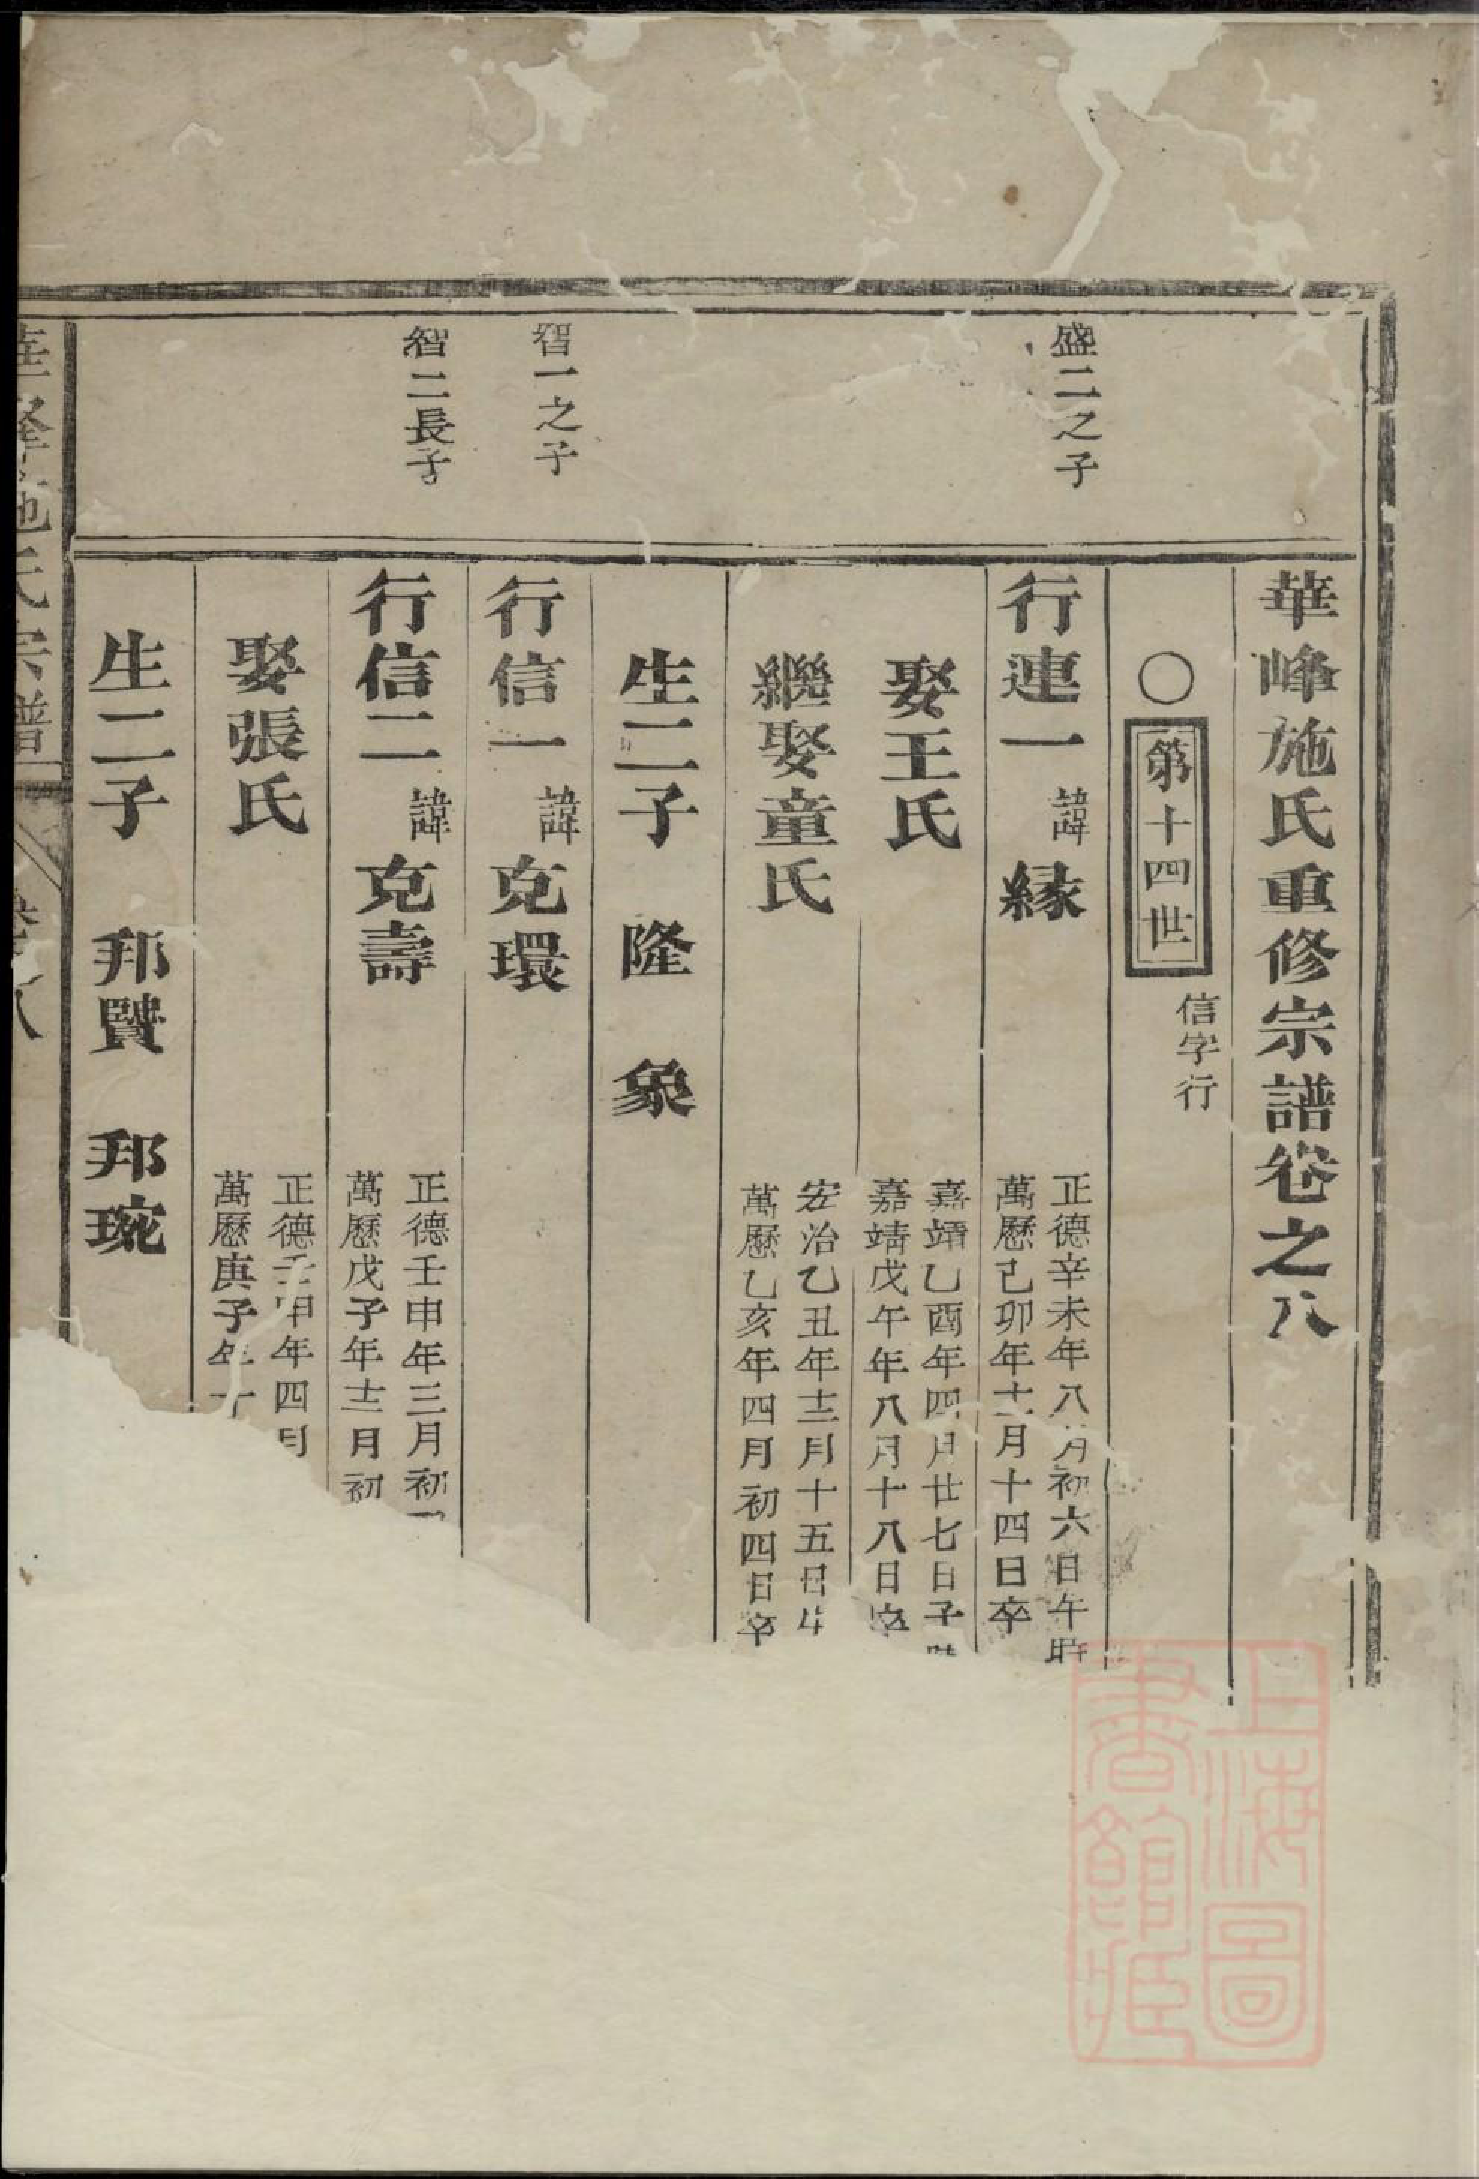 華峰施氏重修宗譜卷之八
〇第十四世
信字行
盛二之子
行連一 諱 縁
正德辛未年八月初六日午時
萬歷己卯年十二月十四日卒
娶王氏
嘉靖乙酉年四月廿七日子時
嘉靖戊午年八月十八日卒
繼娶童氏
宏治乙丑年十二月十五日
萬歷乙亥年四月初四日卒
生二子 隆 象
智一之子
行信一 諱 克環
智二長子
行信二 諱 克壽
正德壬申年三月初
萬歷戊子年十二月初
娶張氏
正德壬申年四月
萬歷庚子年十
生二子 邦贒 邦琓
華峰施氏宗譜 卷之八
上海圖書館藏